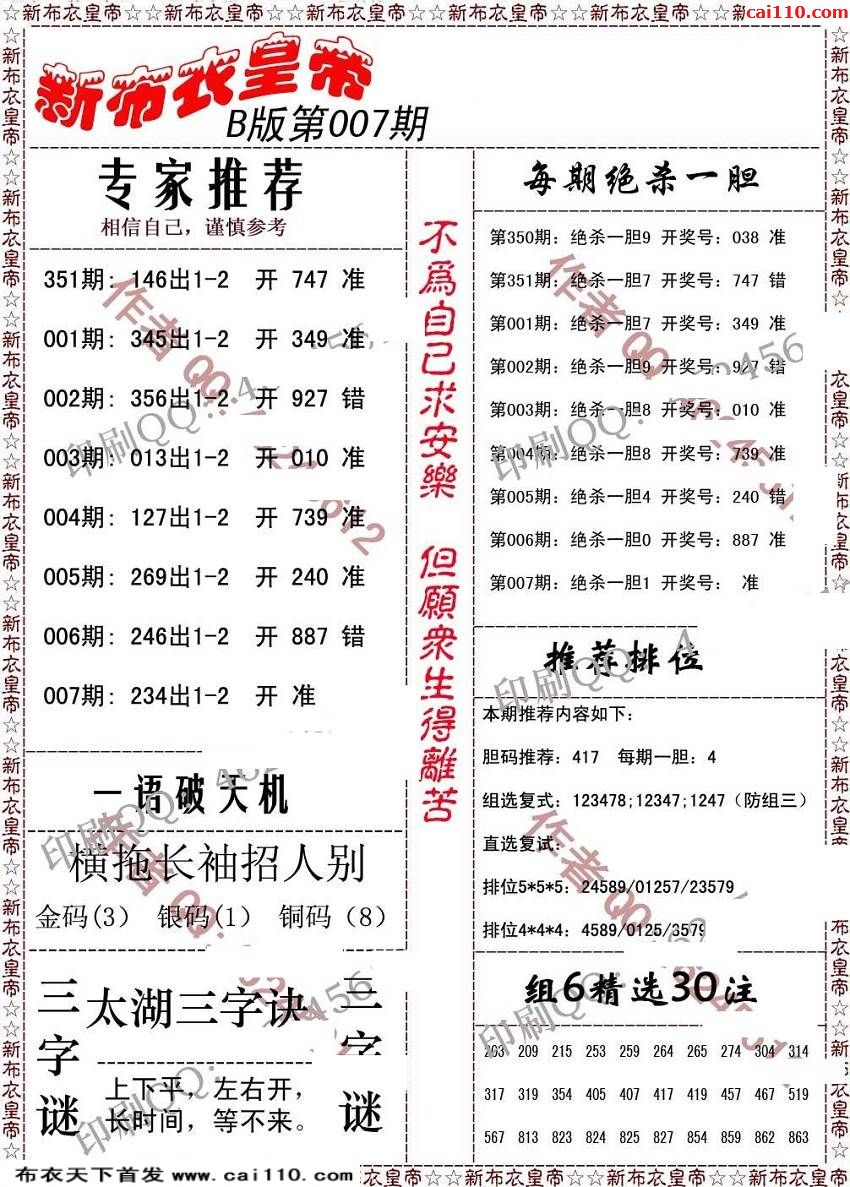 新布衣皇帝☆☆新布衣皇帝☆☆新布衣皇帝☆☆新布衣皇帝☆☆新布衣皇帝☆☆新布衣皇帝☆☆
cai110.com
新布衣皇帝
B版第007期
专家推荐
相信自己，谨慎参考
351期: 146出1-2 开 747 准
001期: 345出1-2 开 349 准
002期: 356出1-2 开 927 错
003期: 013出1-2 开 010 准
004期: 127出1-2 开 739 准
005期: 269出1-2 开 240 准
006期: 246出1-2 开 887 错
007期: 234出1-2 开 准
一语破天机
横拖长袖招人别
金码(3) 银码(1) 铜码（8）
三字谜
太湖三字诀
上下平，左右开，
长时间，等不来。
三字谜
不爲自己求安樂 但願衆生得離苦
每期绝杀一胆
第350期: 绝杀一胆9 开奖号: 038 准
第351期: 绝杀一胆7 开奖号: 747 错
第001期: 绝杀一胆7 开奖号: 349 准
第002期: 绝杀一胆9 开奖号: 927 错
第003期: 绝杀一胆8 开奖号: 010 准
第004期: 绝杀一胆8 开奖号: 739 准
第005期: 绝杀一胆4 开奖号: 240 错
第006期: 绝杀一胆0 开奖号: 887 准
第007期: 绝杀一胆1 开奖号: 准
推荐排位
本期推荐内容如下:
胆码推荐: 417 每期一胆: 4
组选复式: 123478;12347;1247（防组三）
直选复试:
排位5*5*5: 24589/01257/23579
排位4*4*4: 4589/0125/3579
组6精选30注
203 209 215 253 259 264 265 274 304 314
317 319 354 405 407 417 419 457 467 519
567 813 823 824 825 827 854 859 862 863
布衣天下首发 www.cai110.com
衣皇帝☆☆新布衣皇帝☆☆新布衣皇帝☆☆新布衣皇帝☆☆